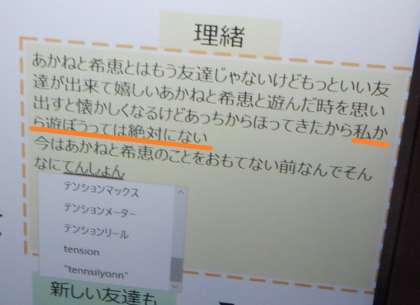 理緒
あかねと希恵とはもう友達じゃないけどもっといい友
達が出来て嬉しいあかねと希恵と遊んだ時を思い
出すと懐かしくなるけどあっちからほってきたから私か
ら遊ぼうっては絶対にない
今はあかねと希恵のことをおもてない前なんでそん
なにてんしょん
テンションマックス
テンションメーター
テンションリール
tension
"tennsiyonn"
新しい友達も